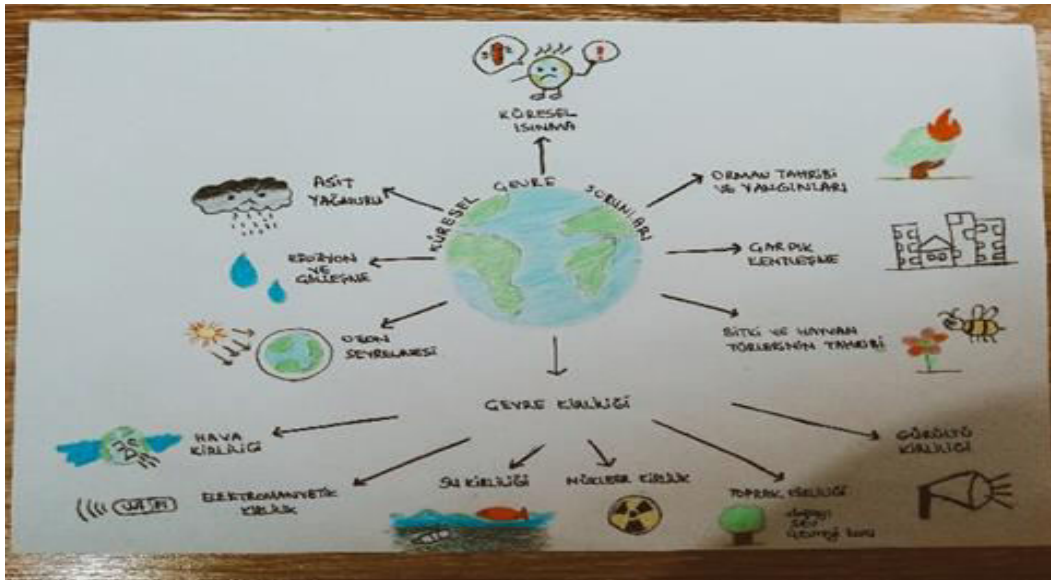 KÜRESEL
ISINMA
KÜRESEL ÇEVRE SORUNLARI
ASİT
YAĞMURU
EROZYON
VE
ÇÖLLEŞME
OZON
SEYRELMESİ
ORMAN TAHRİBİ
VE YANGINLARI
ÇARPIK
KENTLEŞME
BİTKİ VE HAYVAN
TÜRLERİNİN TAHRİBİ
ÇEVRE KİRLİLİĞİ
HAVA
KİRLİLİĞİ
ELEKTROMANYETİK
KİRLİLİK
SU KİRLİLİĞİ
NÜKLEER KİRLİLİK
TOPRAK KİRLİLİĞİ
doğayı
sev
çevreyi koru
GÜRÜLTÜ
KİRLİLİĞİ